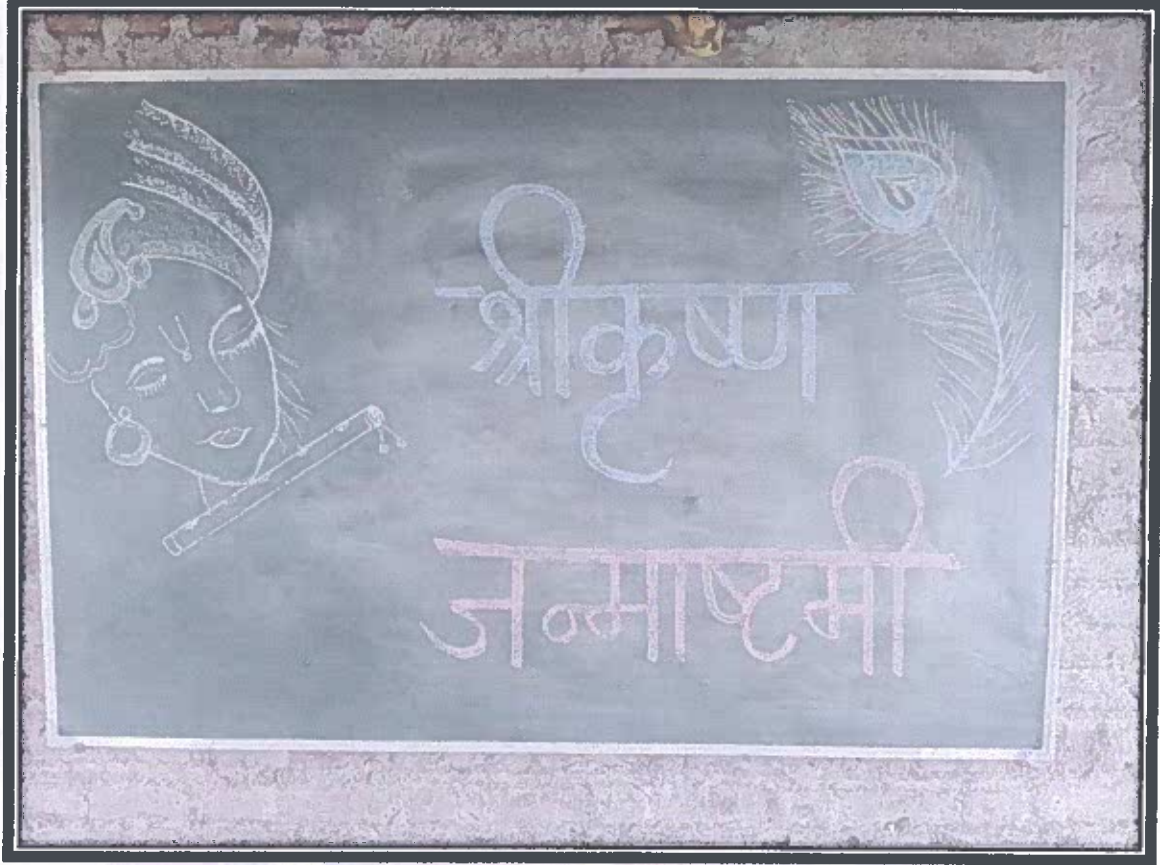 श्रीकृष्ण
जन्माष्टमी